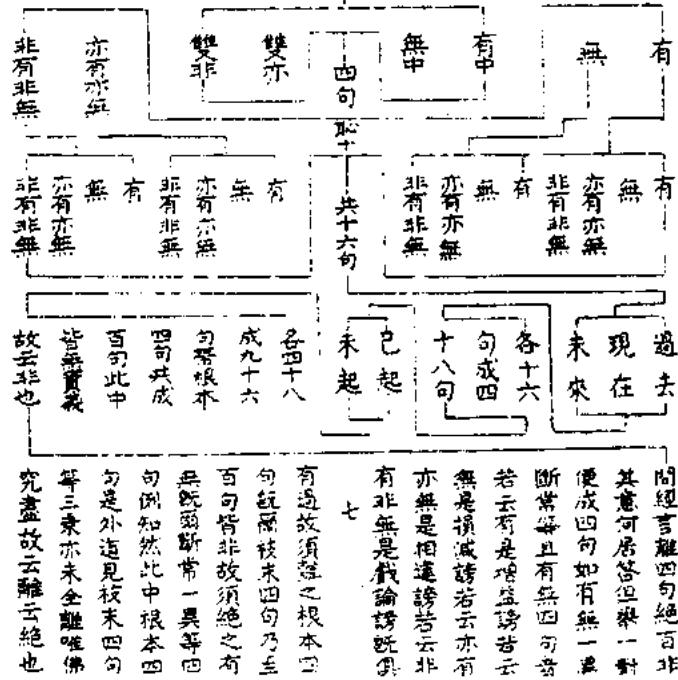 有
無
有中
無中
四句
雙亦
雙非
亦有亦無
非有非無
有
無
亦有亦無
非有非無
有
無
亦有亦無
非有非無
共十六句
有
無
亦有亦無
非有非無
有
無
亦有亦無
非有非無
過去
現在
未來
各十六
句成四
十八句
已起
未起
各四十八
成九十六
句帶根本
四句共成
百句此中
皆無實義
故云非也
問經言離四句絕百非
其意何居答但舉一對
便成四句如有無一異
斷常等且有無四句者
若云有是增益謗若云
無是損減謗若云亦有
亦無是相違謗若云非
有非無是戲論謗既俱
七
有過故須離之根本四
句既爾枝末四句乃至
百句皆非故須絕之有
無既爾斷常一異等四
句例知然此中根本四
句是外道見枝末四句
等三乘亦未全離唯佛
究盡故云離云絕也